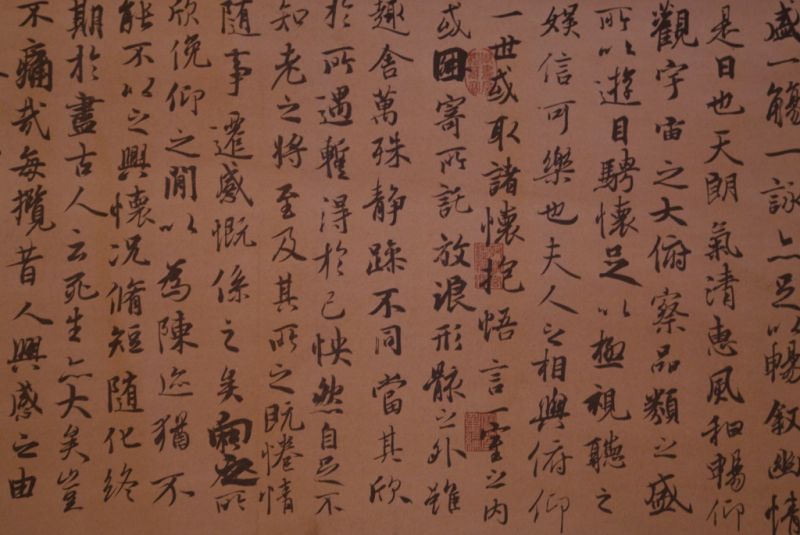 盛一觴一詠亦足以暢叙幽情
是日也天朗氣清惠風和暢仰
觀宇宙之大俯察品類之盛
所以遊目騁懷足以極視聽之
娛信可樂也夫人之相與俯仰
一世或取諸懷抱悟言一室之內
或因寄所託放浪形骸之外雖
趣舍萬殊静躁不同當其欣
於所遇蹔得於己怏然自足不
知老之將至及其所之既惓情
隨事遷感慨係之矣向之所
欣俛仰之閒以為陳迹猶不
能不以之興懷況脩短隨化終
期於盡古人云死生亦大矣豈
不痛哉每攬昔人興感之由